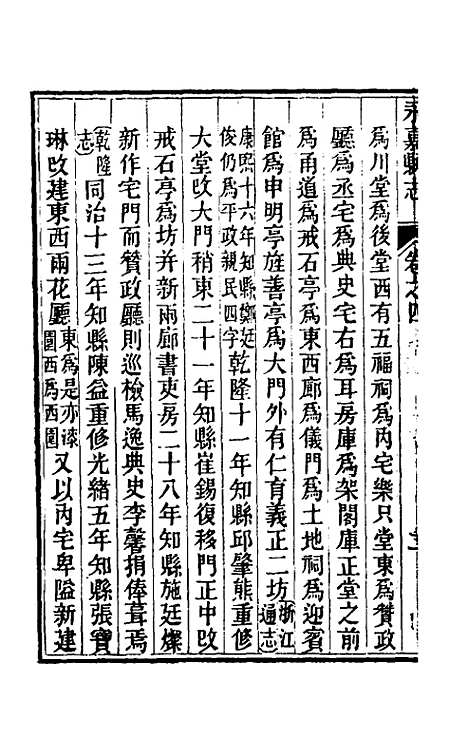 永嘉縣志
卷之四
爲川堂爲後堂西有五福祠爲內宅樂只堂東爲贊政
廳爲丞宅爲典史宅右爲耳房庫爲架閣庫正堂之前
爲甬道爲戒石亭爲東西廊爲儀門爲土地祠爲迎賓
館爲申明亭旌善亭爲大門外有仁育義正二坊浙江通志
康熙十六年知縣鄭廷俊仍爲平政親民四字乾隆十一年知縣邱肇熊重修
大堂改大門稍東二十一年知縣崔錫復移門正中改
戒石亭爲坊并新兩廊書吏房二十八年知縣施廷燦
新作宅門而贊政廳則巡檢馬逸典史李馨捐俸葺焉
乾隆志同治十三年知縣陳益重修光緒五年知縣張寶
琳改建東西兩花廳東爲是亦漆園西爲西園又以內宅卑隘新建